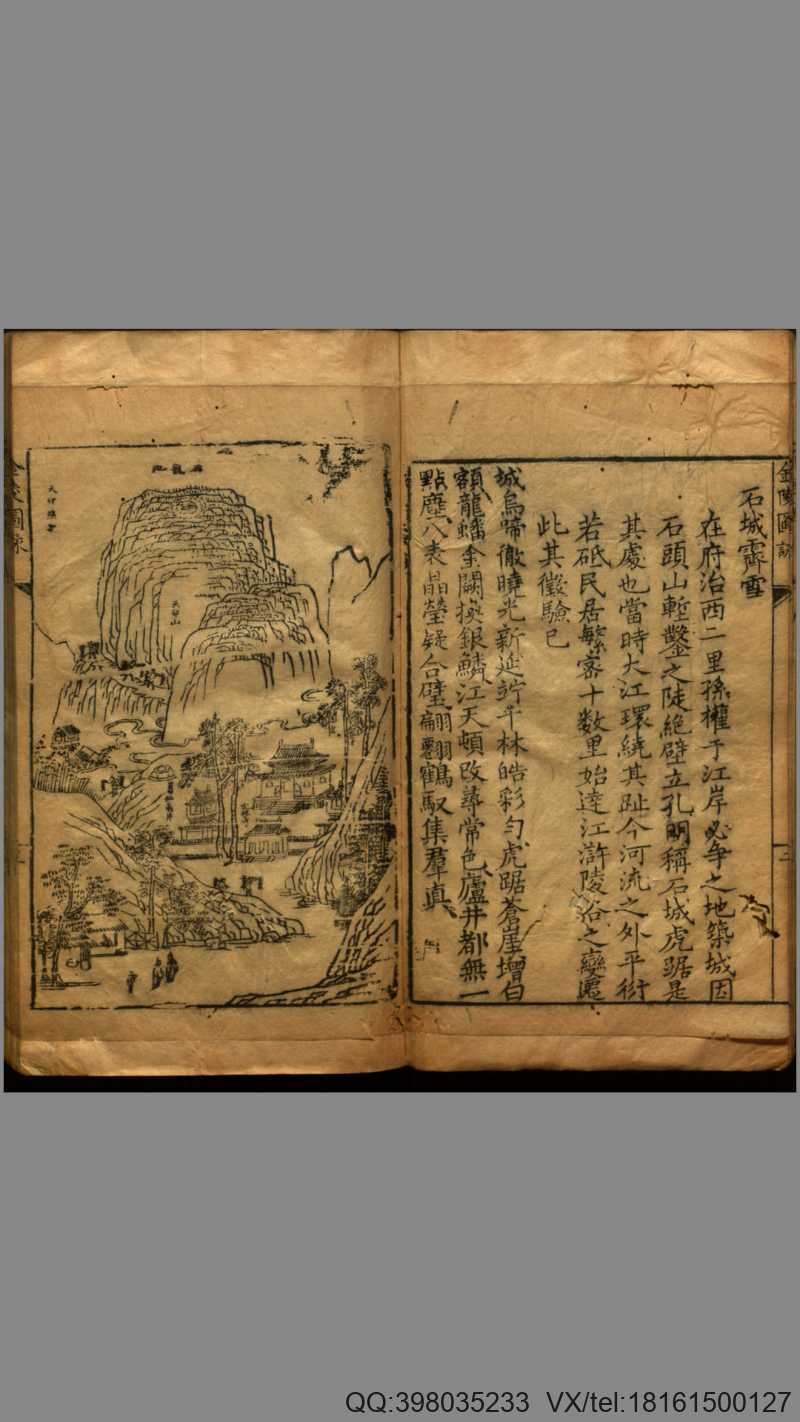 金陵圖詠
石城霽雪
在府治西二里孫權于江岸必爭之地築城因
石頭山塹鑿之陡絶壁立孔明稱石城虎踞是
其處也當時大江環繞其趾今河流之外平衍
若砥民居繁密十數里始達江滸陵谷之變遷
此其徵驗已
城烏啼徹曉光新延竚千林皓彩勻虎踞蒼崖增白
額龍蟠金闕換銀鱗江天頓改尋常色廬井都無一
點塵八表晶瑩疑合璧翩翩鶴馭集羣真
天印山
天印樵歌
金陵圖詠
QQ:398035233 VX/tel:18161500127